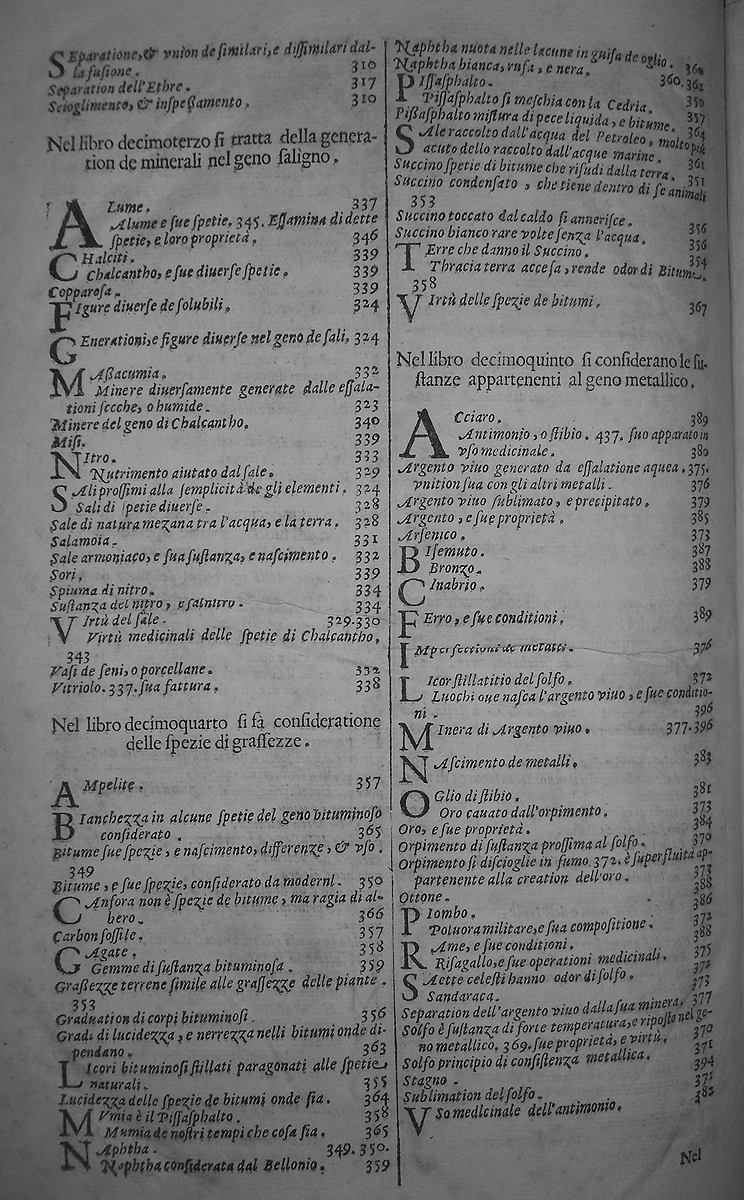 SEparatione, & vnion de similari, e dissimilari dal-
la fusione. 310
Separation dell'Ethre. 317
Scioglimento, & inspeßamento. 310
Nel libro decimoterzo si tratta della genera-
tion de minerali nel geno saligno.
ALume. 337
Alume e sue spetie. 345. Essamina di dette
spetie, e loro proprietà. 346
CHalciti. 339
Chalcantho, e sue diuerse spetie. 339
Copparosa. 339
FIgure diuerse de solubili. 324
GEnerationi, e figure diuerse nel geno de sali. 324
MAßacumia. 332
Minere diuersamente generate dalle essala-
tioni secche, o humide. 323
Minere del geno di Chalcantho. 340
Misi. 339
NItro. 333
Nutrimento aiutato dal sale. 329
SAli prossimi alla semplicità de gli elementi. 324
Sali di spetie diuerse. 328
Sale di natura mezana tra l'acqua, e la terra. 328
Salamoia. 331
Sale armoniaco, e sua sustanza, e nascimento. 332
Sori. 339
Spiuma di nitro. 334
Sustanza del nitro, e salnitro. 334
VIrtù del sale. 329.330
Virtù medicinali delle spetie di Chalcantho.
343
Vasi de seni, o porcellane. 332
Vitriolo. 337. sua fattura. 338
Nel libro decimoquarto si fà consideratione
delle spezie di grassezze.
AMpelite. 357
BIanchezza in alcune spetie del geno bituminoso
considerato. 365
Bitume sue spezie, e nascimento, differenze, & vso.
349
Bitume, e sue spezie, considerato da modernl. 350
CAnfora non è spezie de bitume, ma ragia di al-
bero. 366
Carbon fossile. 357
GAgate. 358
Gemme di sustanza bituminosa. 359
Graßezze terrene simile alle grassezze delle piante.
353
Graduation di corpi bituminosi. 356
Gradi di lucidezza, e nerrezza nelli bitumi onde di-
pendano. 363
LIcori bituminosi stillati paragonati alle spetie
naturali. 355
Lucidezza delle spezie de bitumi onde sia. 364
MVmia è il Pissasphalto. 358
Mumia de nostri tempi che cosa sia. 365
NAphtha. 349.350.
Naphtha considerata dal Bellonio. 359
Naphtha nuota nelle lacune in guisa de oglio. 360
Naphtha bianca, rufa, e nera. 360.362
PIssasphalto. 350
Pissasphalto si meschia con la Cedria. 357
Pißasphalto mistura di pece liquida, e bitume. 364
SAle raccolto dall'acqua del Petroleo, molto piu
acuto dello raccolto dall'acque marine. 361
Succino spetie di bitume che risudi dalla terra. 351
Succino condensato, che tiene dentro di se animali
353
Succino toccato dal caldo si annerisce. 356
Succino bianco rare volte senza l'acqua. 356
TErre che danno il Succino. 354
Thracia terra accesa, rende odor di Bitume.
358
VIrtù delle spezie de bitumi. 367
Nel libro decimoquinto si considerano le su-
stanze appartenenti al geno metallico.
ACciaro. 389
Antimonio, o stibio. 437. suo apparato in
vso medicinale. 380
Argento viuo generato da essalatione aquea. 375.
vnition sua con gli altri metalli. 376
Argento viuo sublimato, e precipitato. 379
Argento, e sue proprietà. 385
Arsenico. 373
BIsemuto. 387
Bronzo. 388
CInabrio. 379
FErro, e sue conditioni. 389
IMperfettioni de metalli. 376
LIcor stillatitio del solfo. 372
Luochi oue nasca l'argento viuo, e sue conditio-
ni. 396
MInera di Argento viuo. 377.396
NAscimento de metalli. 383
OGlio di stibio. 381
Oro cauato dall'orpimento. 373
Oro, e sue proprietà. 384
Orpimento di sustanza prossima al solfo. 370
Orpimento si discioglie in fumo 372. è superfluita ap-
partenente alla creation dell'oro. 373
Ottone. 388
PIombo. 386
Poluora militare, e sua compositione. 372
RAme, e sue conditioni. 388
Risagallo, e sue operationi medicinali. 375
SAette celesti hanno odor di solfo. 372
Sandaraca. 373
Separation dell'argento viuo dalla sua minera. 377
Solfo è sustanza di forte temperatura, e riposto nel ge-
no metallico. 369. sue proprietà, e virtù. 370
Solfo principio di consistenza metallica. 371
Stagno. 394
Sublimation del solfo. 371
VSo medicinale dell'antimonio. 382
Nel